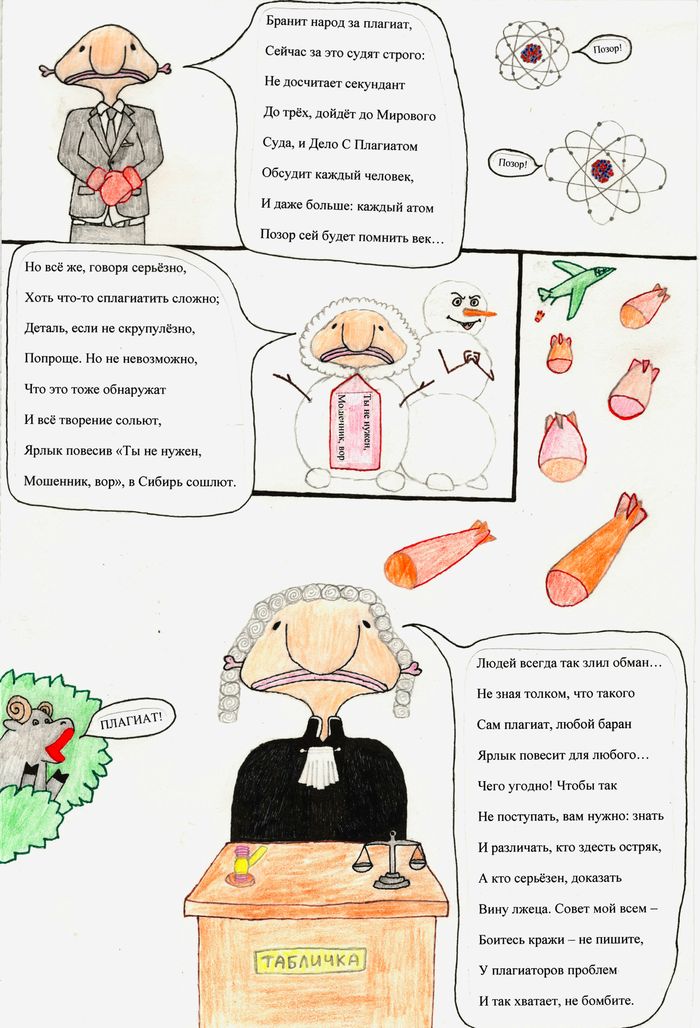 Бранит народ за плагиат,
Сейчас за это судят строго:
Не досчитает секундант
До трёх, дойдёт до Мирового
Суда, и Дело С Плагиатом
Обсудит каждый человек,
И даже больше: каждый атом
Позор сей будет помнить век…
Позор!
Позор!
Но всё же, говоря серьёзно,
Хоть что-то сплагиатить сложно;
Деталь, если не скрупулёзно,
Попроще. Но не невозможно,
Что это тоже обнаружат
И всё творение сольют,
Ярлык повесив «Ты не нужен,
Мошенник, вор», в Сибирь сошлют.
Ты не нужен,
Мошенник, вор
ПЛАГИАТ!
Людей всегда так злил обман…
Не зная толком, что такого
Сам плагиат, любой баран
Ярлык повесит для любого…
Чего угодно! Чтобы так
Не поступать, вам нужно: знать
И различать, кто здесть остряк,
А кто серьёзен, доказать
Вину лжеца. Совет мой всем –
Боитесь кражи – не пишите,
У плагиаторов проблем
И так хватает, не бомбите.
ТАБЛИЧКА